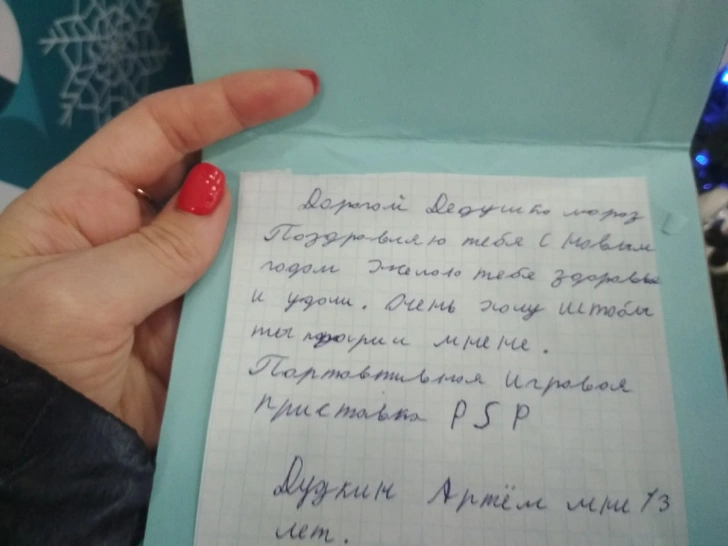 Дорогой Дедушка мороз
Поздровляю тебя с новым
годом Желаю тебе здоровья
и удачи. Очень хочу штобы
ты мне не.
Партовтивная игровая
приставка PSP
Дудкин Артём мне 13
лет.